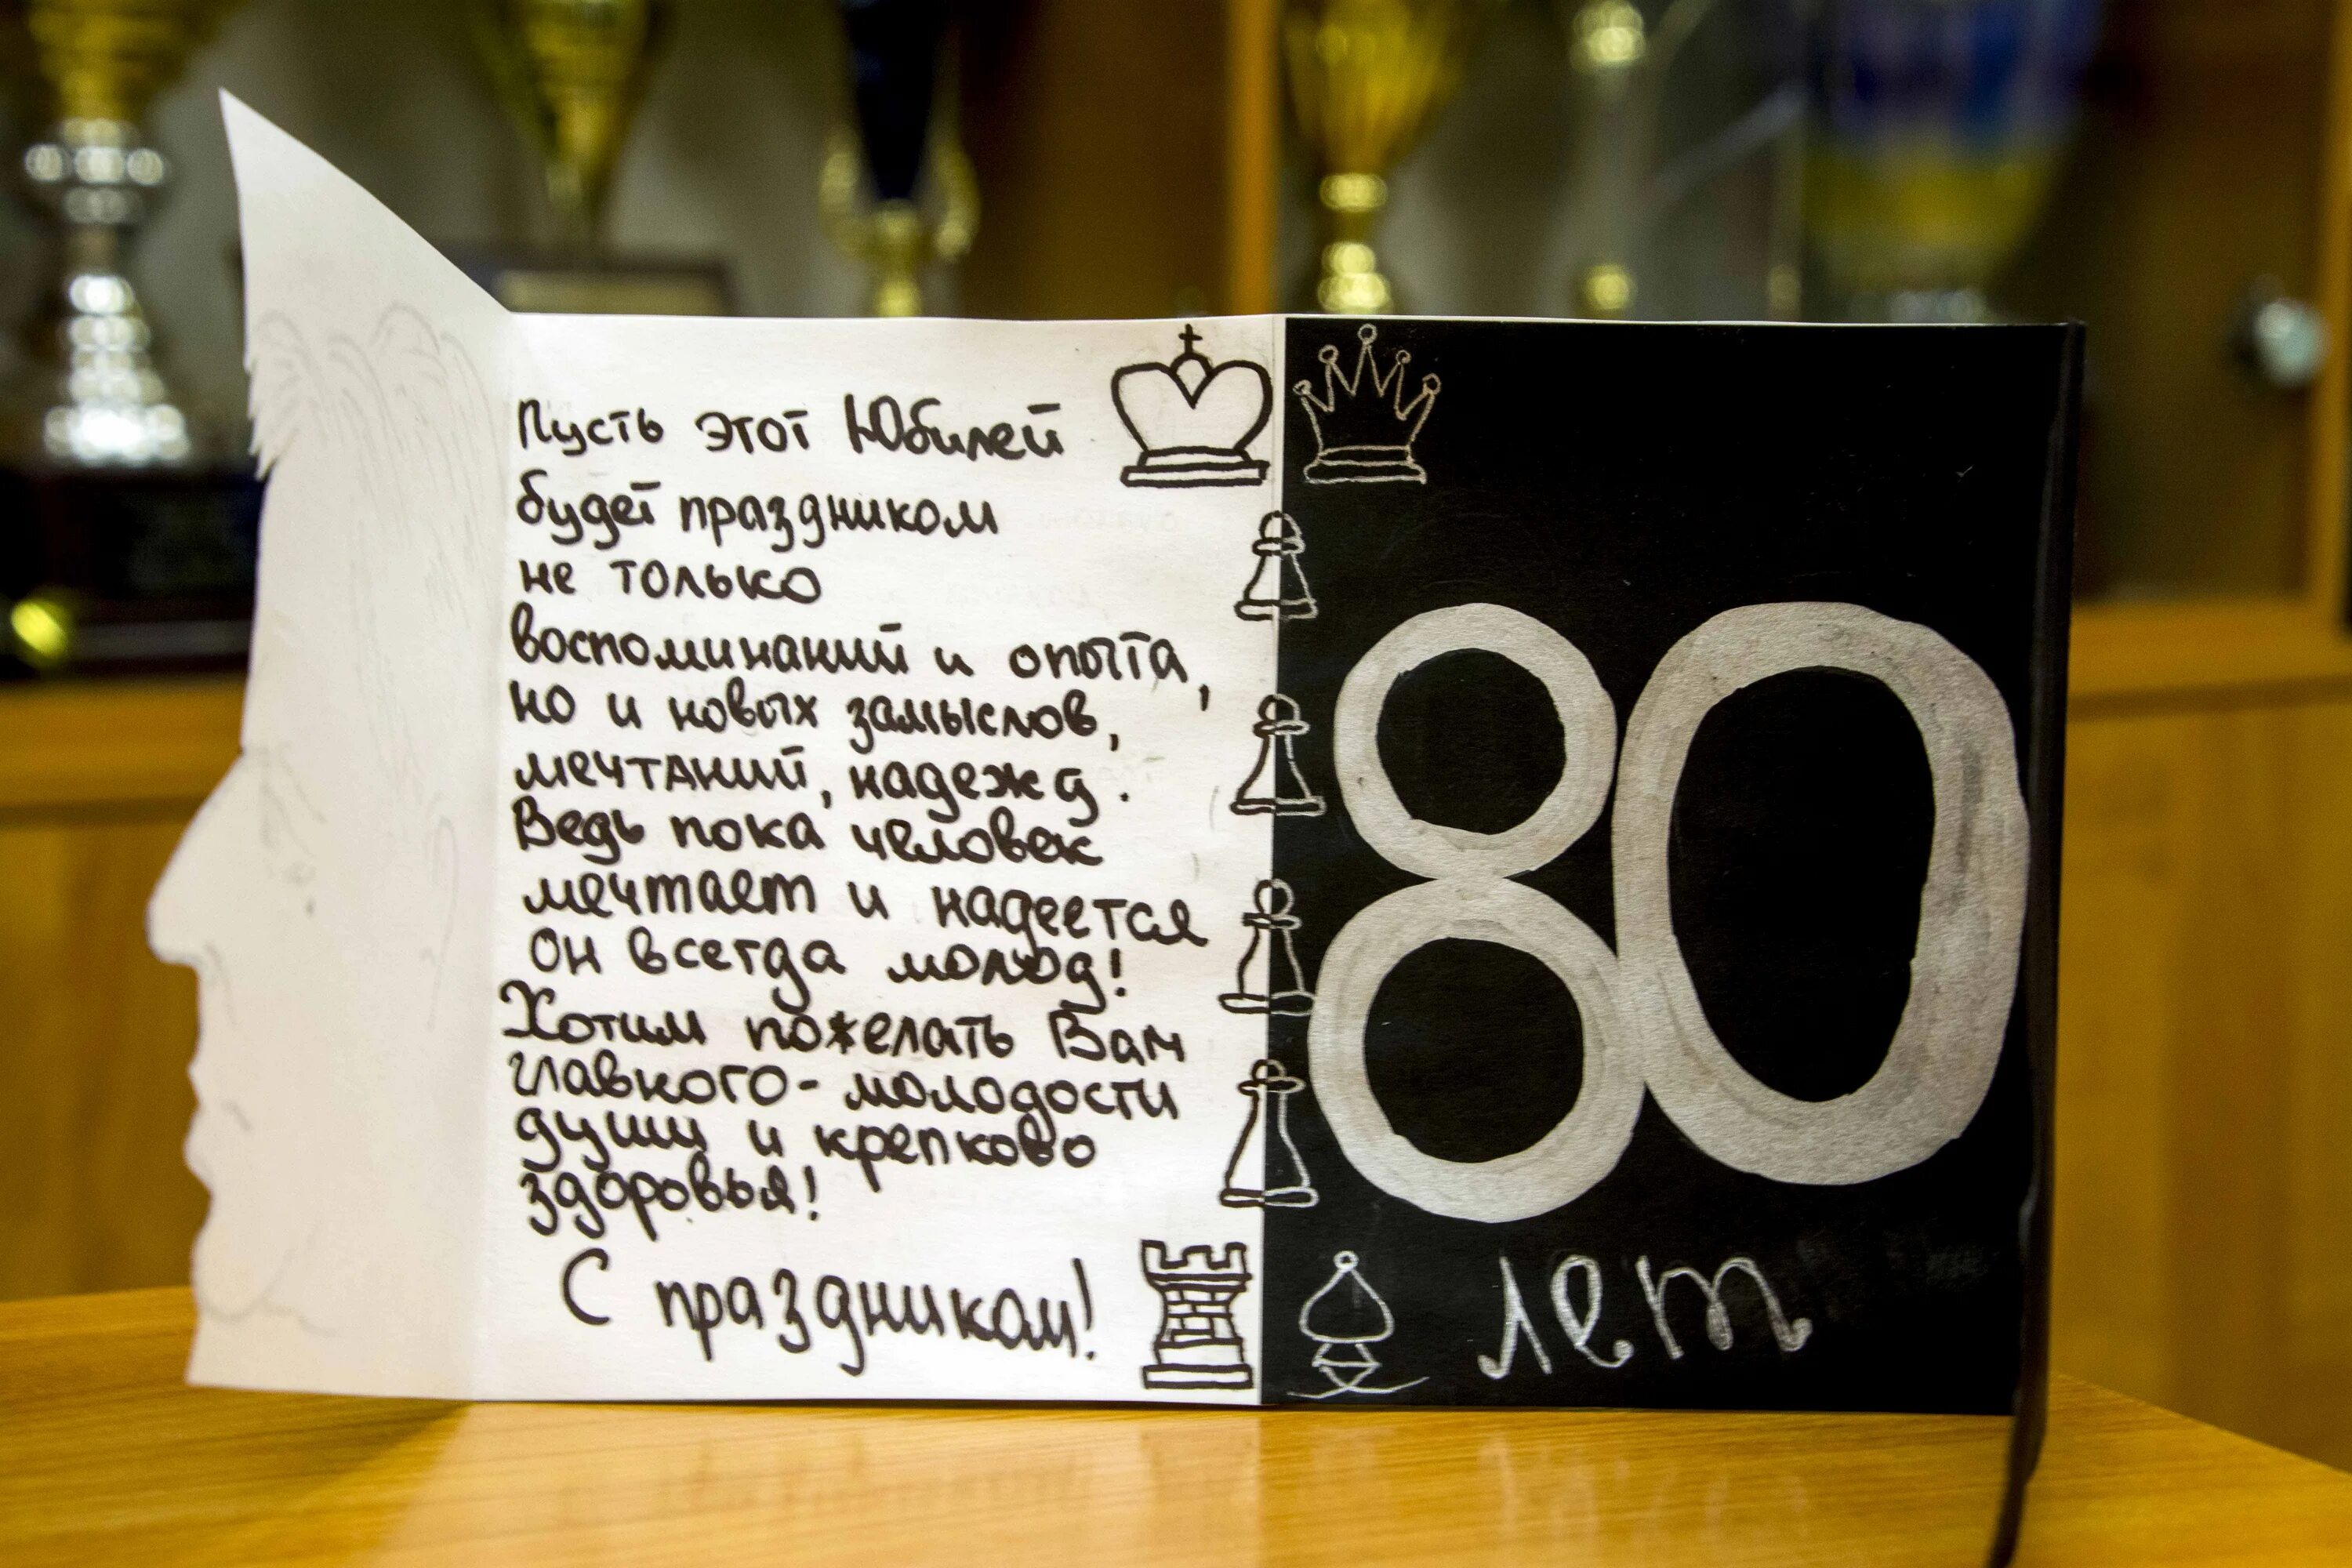 Пусть этот Юбилей
будет праздником
не только
воспоминаний и опыта,
но и новых замыслов,
мечтаний, надежд.
Ведь пока человек
мечтает и надеется
он всегда молод!
Хотим пожелать Вам
главного - молодости
души и крепково
здоровья!
С праздником!
80
лет